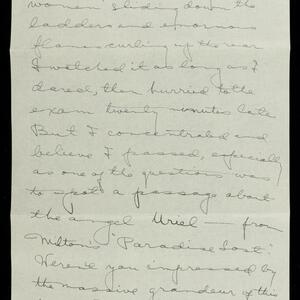 women sliding down the
ladders and enormous
flames curling up the rear
I watched it as long as I
dared, then hurried to the
exam twenty minutes late
But I concentrated and
believe I passed, especially
as one of the questions was
to spot a passage about
the angel Uriel — from
Milton's "Paradise Lost".
Weren't you impressed by
the massive grandeur of this